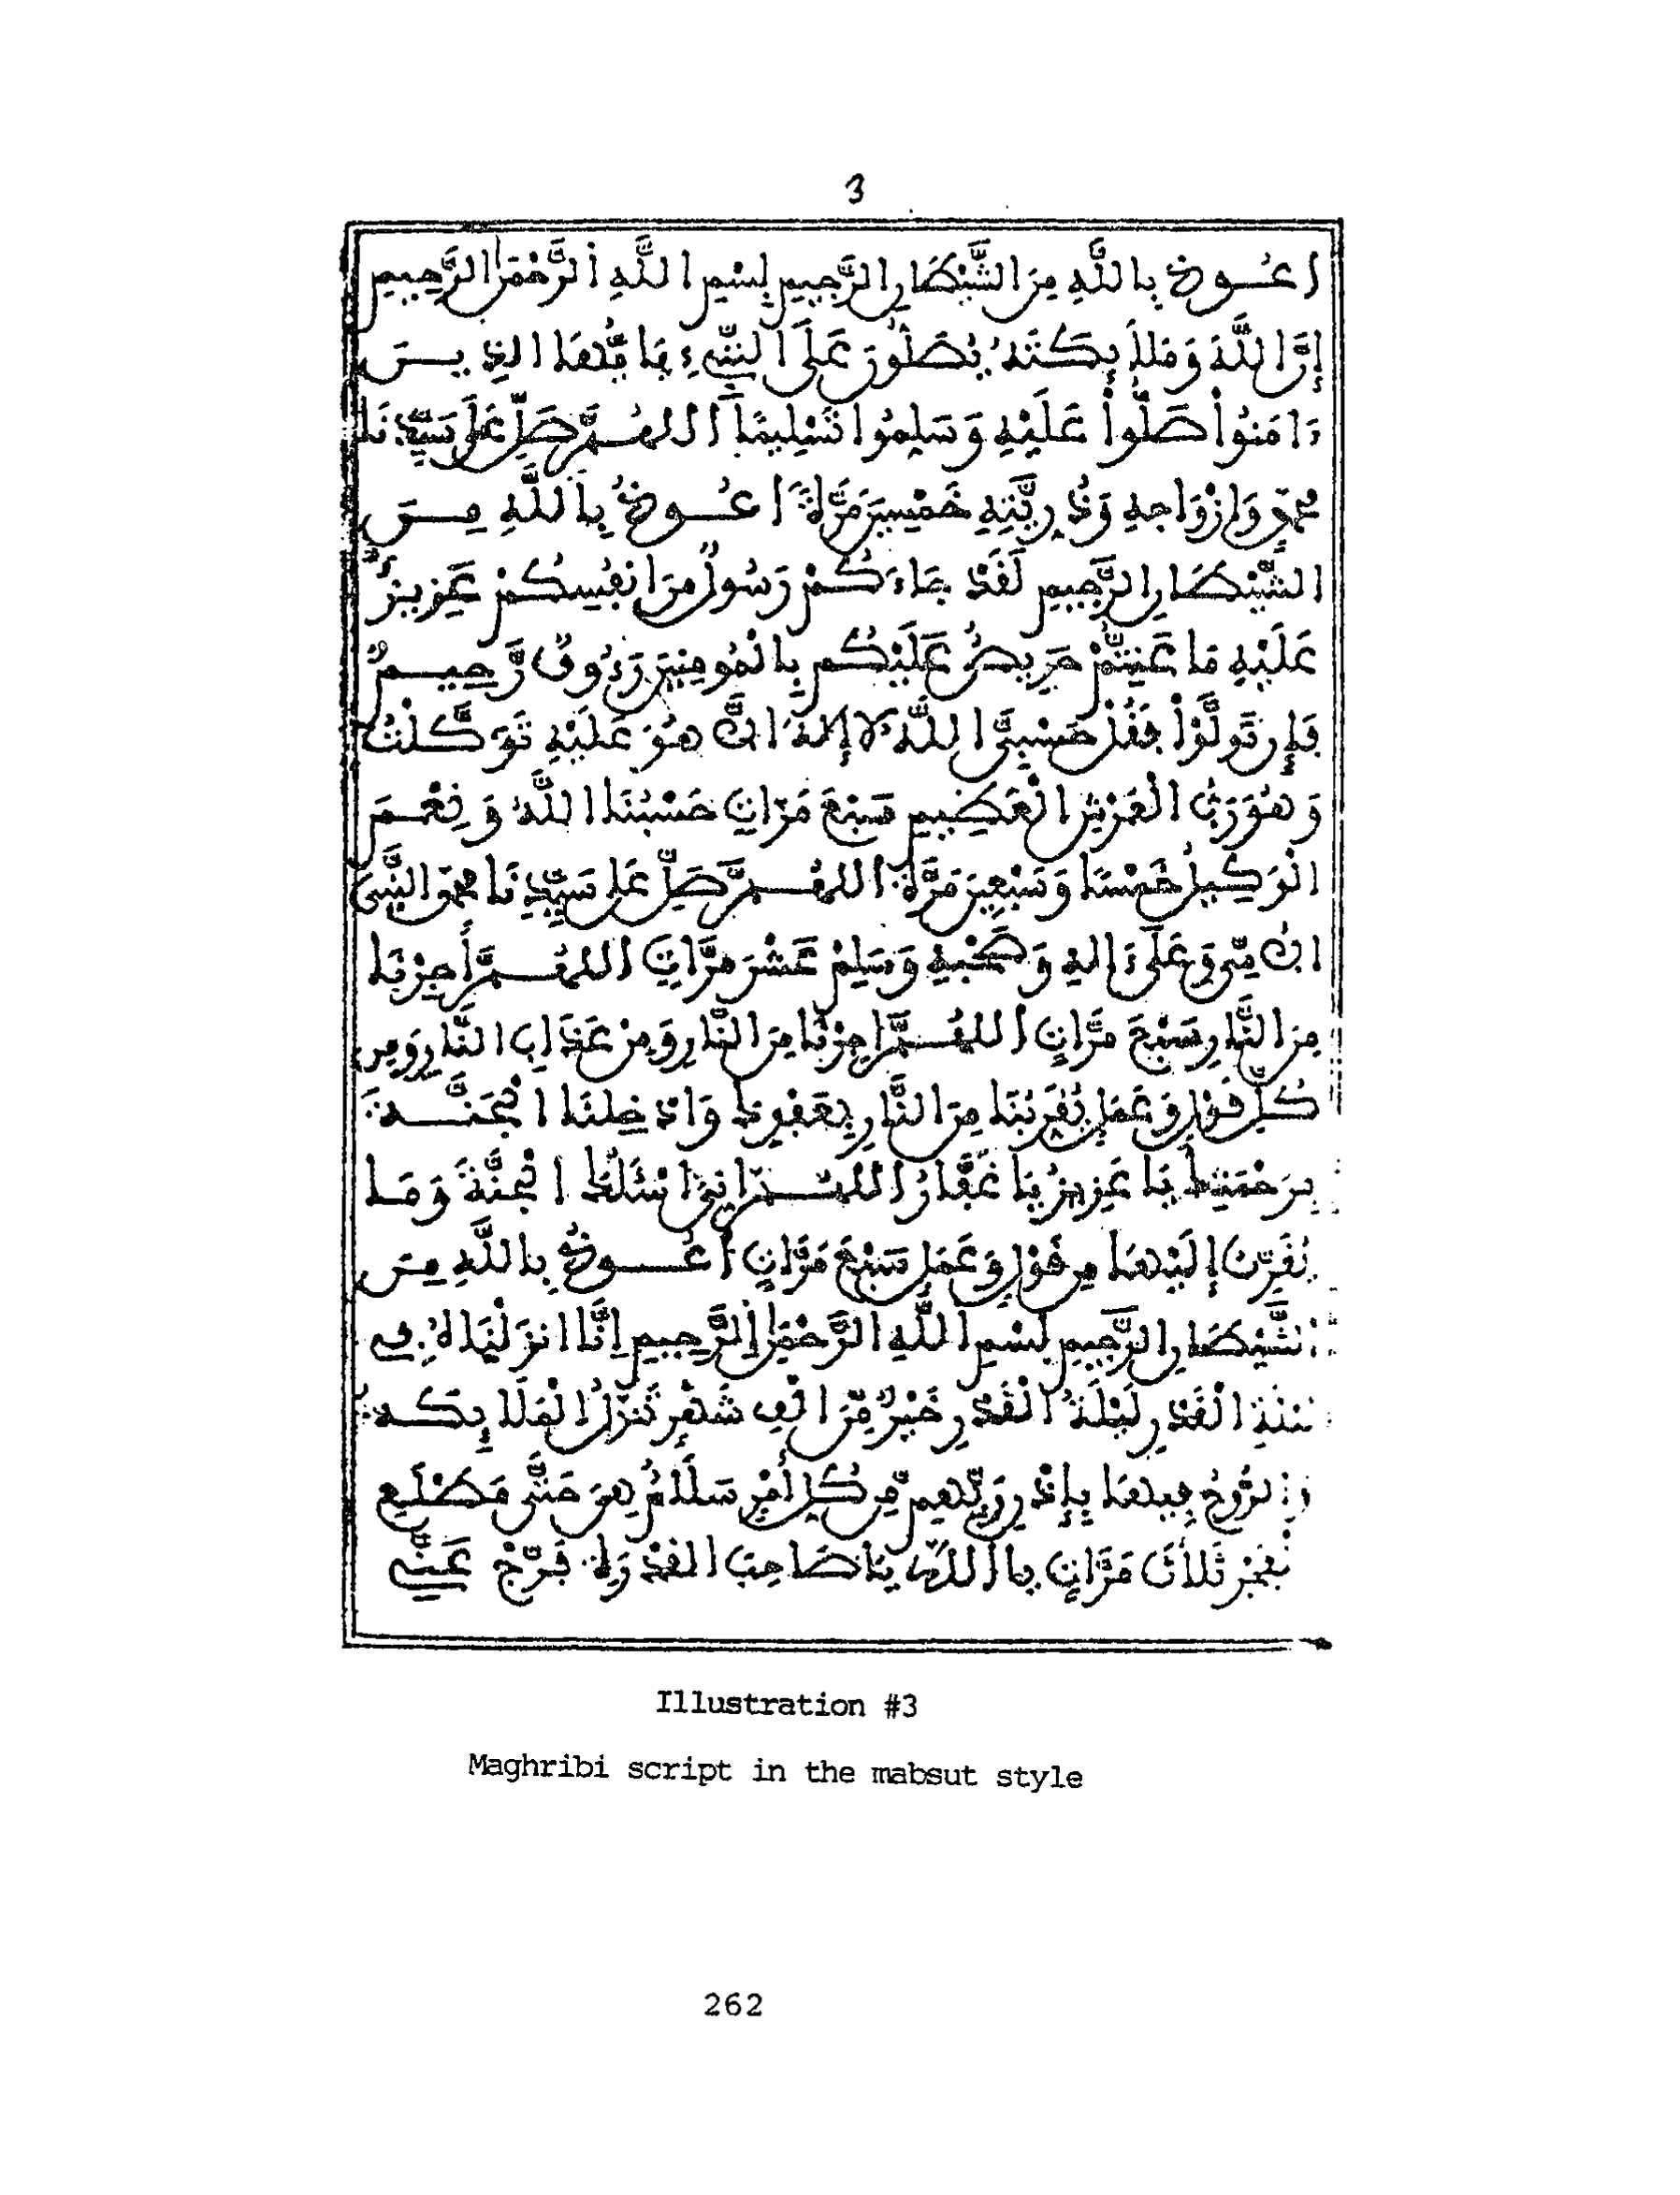 3
اعُوذُ بِاللَّهِ مِنَ الشَّيْطَانِ الرَّجِيمِ بِسْمِ اللَّهِ الرَّحْمَنِ الرَّحِيمِ
إِنَّ اللَّهَ وَمَلَائِكَتَهُ يُصَلُّونَ عَلَى النَّبِيءِ يَا أَيُّهَا الذِيـنَ
ءَامَنُواْ صَلُّواْ عَلَيْهِ وَسَلِّمُوا تَسْلِيمًا اللهُمَّ صَلِّ عَلَى سَيِّدِنَا
مُحَمَّدٍ وَازْوَاجِهِ وَذُرِّيَّتِهِ خَمْسِينَ مَرَّةً اعُوذُ بِاللَّهِ مِنَ
الشَّيْطَانِ الرَّجِيمِ لَقَدْ جَاءَكُمْ رَسُولٌ مِنَ انفُسِكُمْ عَزِيزٌ
عَلَيْهِ مَا عَنِتُّمْ حَرِيصٌ عَلَيْكُم بِالْمُومِنِينَ رَءُوفٌ رَّحِيمٌ
فَإِن تَوَلَّوْاْ فَقُلْ حَسْبِيَ اللَّهُ لَا إِلَهَ الَّا هُوَ عَلَيْهِ تَوَكَّلْتُ
وَهُوَ رَبُّ الْعَرْشِ الْعَظِيمِ سَبْعَ مَرَّاتٍ حَسْبُنَا اللَّهُ وَنِعْمَ
الْوَكِيلُ خَمْسًا وَسَبْعِينَ مَرَّةً اللهُمَّ صَلِّ عَلَى سَيِّدِنَا مُحَمَّدٍ النَّبِيِّ
الامِّيِّ وَعَلَى ءَالِهِ وَصَحْبِهِ وَسَلِّمْ عَشْرَ مَرَّاتٍ اللهُمَّ أَجِرْنَا
مِنَ النَّارِ سَبْعَ مَرَّاتٍ اللهُمَّ اجِرْنَا مِنَ النَّارِ وَمِنْ عَذَابِ النَّارِ وَمِن
كُلِّ قَوْلٍ وَعَمَلٍ يُقَرِّبُنَا مِنَ النَّارِ بِعَفْوِكَ وَادْخِلْنَا الْجَنَّةَ
بِرَحْمَتِكَ يَا عَزِيزُ يَا غَفَّارُ اللهُمَّ إِنِّي اسْئَلُكَ الْجَنَّةَ وَمَا
يُقَرِّبُ إِلَيْهَا مِن قَوْلٍ وَعَمَلٍ سَبْعَ مَرَّاتٍ اعُوذُ بِاللَّهِ مِنَ
الشَّيْطَانِ الرَّجِيمِ بِسْمِ اللَّهِ الرَّحْمَنِ الرَّحِيمِ إِنَّا انزَلْنَاهُ فِي
لَيْلَةِ الْقَدْرِ لَيْلَةُ الْقَدْرِ خَيْرٌ مِّنَ الْفِ شَهْرٍ تَنَزَّلُ الْمَلَائِكَةُ
وَالرُّوحُ فِيهَا بِإِذْنِ رَبِّهِم مِّن كُلِّ أَمْرٍ سَلَامٌ هِيَ حَتَّى مَطْلَعِ
الْفَجْرِ ثَلَاثَ مَرَّاتٍ يَا اللَّهُ يَا صَاحِبَ الْقُدْرَةِ فَرِّجْ عَنِّي
Illustration #3
Maghribi script in the mabsut style
262